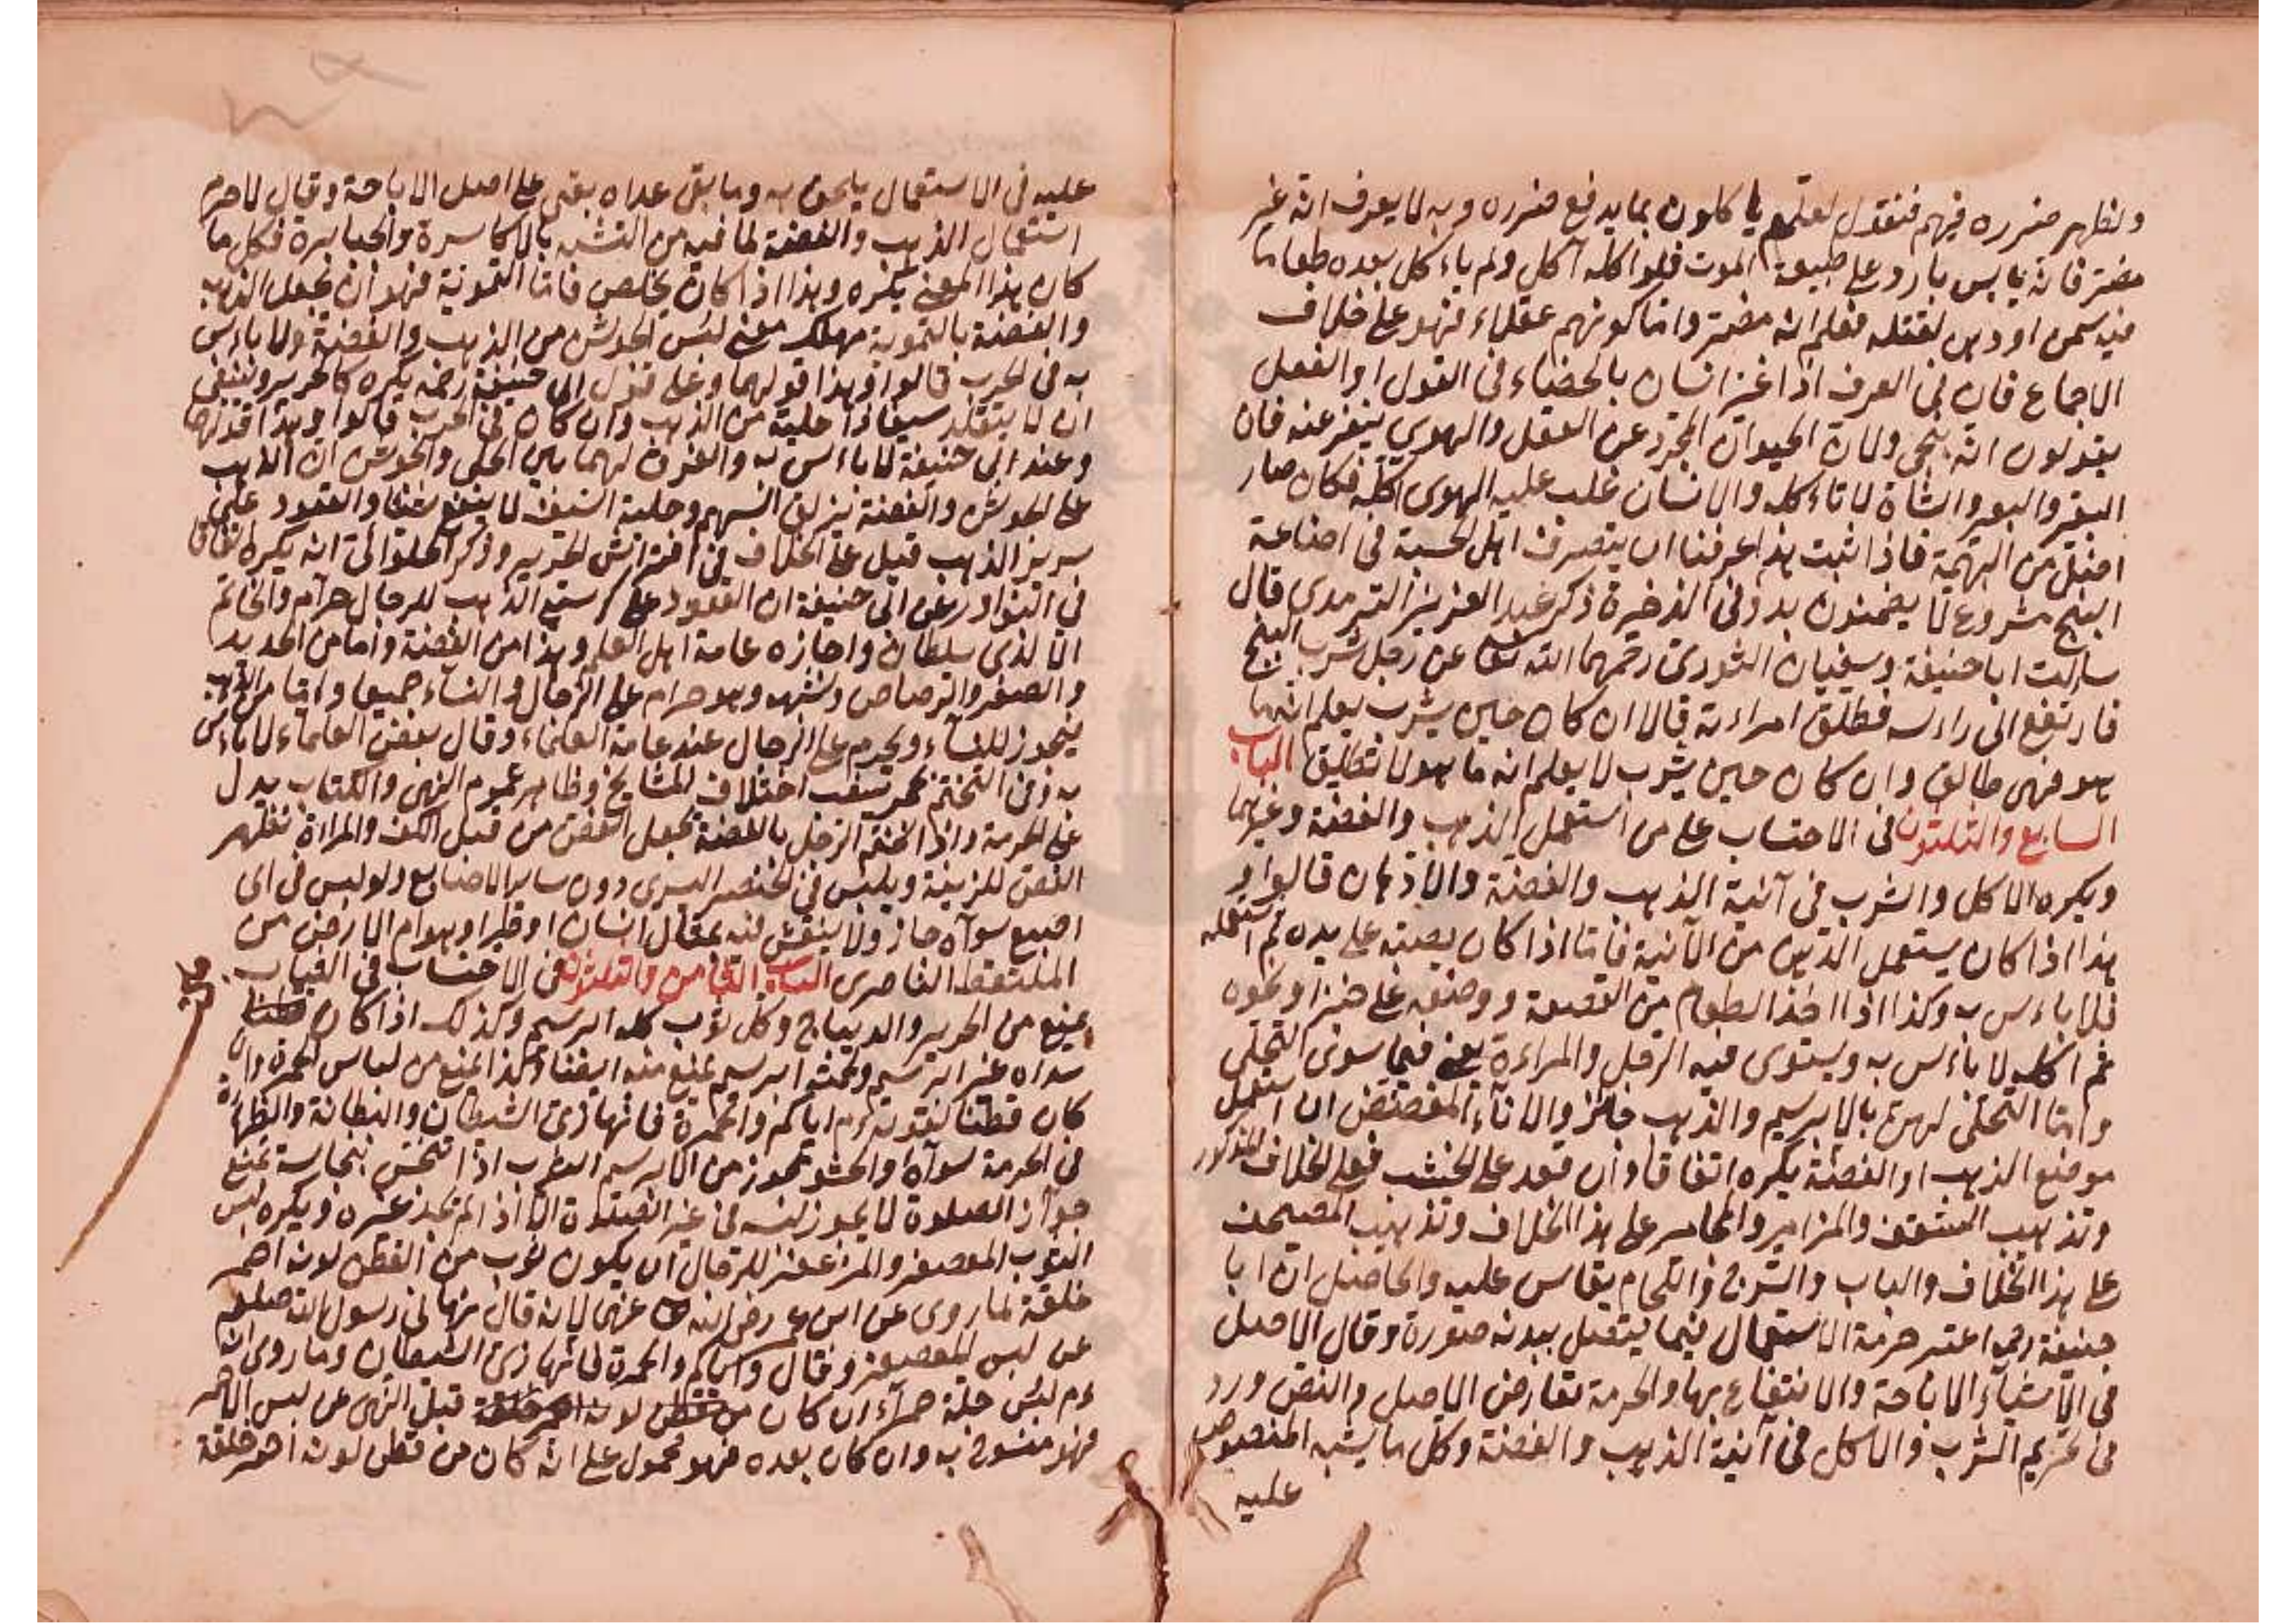 ولظهر ضرره فيهم فنقول لعلهم يا كلون بما يدفع ضرره وبه لا يعرف انه غير
مضر فانه يابس بارد على طبيعة الموت فلو اكله آكل ولم ياءكل بعده طعاما
فيه سمن او دهن لقتله فعلم انه مضر واما كونهم عقلاء فهو على خلاف
الاجماع فان في العرف اذا غير انسان بالخضاء في القول او الفعل
يقولون انه بنجي ولان الحيوان المجرد عن العقل والهوي ينفر عنه فان
البقر والبعير والشاة لا تاءكله والانسان غلب عليه الهوى اكله فكان صار
اضل من البهيمة فاذا ثبت هذا عرفنا ان يتصرف اهل الحسبة في اضاعة
البنج مشروع لا يضمنون به وفي الذخيرة ذكر عبد العزيز الترمدى قال
سالت ابا حنيفة وسفيان الثوري رحمهما الله تعا عن رجل شرب البنج
فارتفع الى راءسه فطلق امراءته قالا ان كان حين يشرب يعلم انه ما
هو فهى طالق وان كان حين يشرب لا يعلم انه ما هو لا تطليق الباب
السابع والثلثون في الاحتساب على من استعمل الذهب والفضة وغيرهما
ويكره الاكل والشرب في آنية الذهب والفضة والأدهان قالوا و
هذا اذا كان يستعمل الدهن من الآنية فاما اذا كان يصبه على يده ثم استعمله
فلا باءس به وكذا اذا اخذ الطعام من القصعة ووضعه على خبز او نحوه
ثم اكله لا باءس به ويستوى فيه الرجل والمراءة يعنى فيما سوى التحلى
واما التحلى لهن بالابرسيم والذهب جائز والاناء المفضض ان استعمل
موضع الذهب او الفضة يكره اتفاقا وان قعد على الخشب فعلى الخلاف المذكور
وتذهيب السقف والمزامير والمجامر على هذا الخلاف وتذهيب المصحف
على هذا الخلاف والباب والسرج واللجام يقاس عليه والحاصل ان ابا
حنيفة رحمه اعتبر حرمة الاستعمال فيما يتصل ببدنه صورة وقال الاصل
في الاشياء الاباحة والانتفاع بها والحرمة تعارض الاصل والنص ورد
في تحريم الشرب والاكل في آنية الذهب والفضة وكل ما يشبه المنصوص
عليه
عليه في الاستعمال يلحق به وما بقى عداه بقى على اصل الاباحة وقال لا حرم
استعمال الذهب والفضة لما فيه من التشبه بالاكاسرة والجبابرة فكل ما
كان بهذا المعنى يكره وهذا اذا كان يخلص فاما التموية فهو ان يجعل الذهب
والفضة بالتموية مهلك معنى لبس الجوش من الذهب والفضة ولا باءس
به في الحرب قالوا وهذا قولهما وعلى قول ابى حنيفة رضه يكره كالحرير وينبغى
ان لا يتقلد سيفا ذا حلية من الذهب وان كان في الحرب قالوا وهذا قولهما
وعند ابى حنيفة لا باءس به والفرق لهما بين الحلى والجوش ان الذهب
على الجوش والفضة يزلق السهم وحلية السيف لا ينفع شيئا والقعود على
سرير الذهب قيل على الخلاف في افتراش الحرير وذكر الحلوائي انه يكره اتفاقا
في النوادر عن ابى حنيفة ان القعود على كرسى الذهب للرجال حرام والخاتم
الا لذى سلطان واجازه عامة اهل العلم وهذا من الفضة واما من الحديد
والصفر والرصاص وشبهه وهو حرام على الرجال والنساء جميعا واما من الذهب
فيجوز للنساء ويحرم على الرجال عند عامة العلماء وقال بعض العلماء لا باءس
به وفي التختم اختلاف المشايخ وظاهر عموم النهى والكتاب يدل
على الحرمة واذا تختم الرجل بالفضة يجعل الفص من قبل الكف والمراءة تظهر
الفص للزينة ويلبس في الخنصر اليسرى دون ساير الاصابع ولو لبس في اى
اصبع سواه جاز ولا ينقش فيه تمثال انسان او طير او هوام الارض من
الملتقط الناصرى الباب الثامن والثلثون في الاحتساب في الثياب
يمنع من الحرير والديباج وكل ثوب كله ابرسيم وكذلك اذا كان
سداه غير ابرسيم ولحمته ابرسيم يمنع منه ايضا وكذا يمنع من لباس الحمرة وان
كان قطنا لقوله ءم اياكم والحمرة فانها زى الشيطان والبطانة والظهارة
في الحرمة سواء والحشو يجوز من الابرسيم الثوب اذا تنجس بنجاسة تمنع
جواز الصلوة لا يجوز لبسه في غير الصلوة الا اذا لم يجد غيره ويكره لبس
الثوب المعصفر والمزعفر للرجال ان يكون ثوب من القطن لونه احمر
خلقة لما روى عن ابن عمر رضى الله عنهما لانه قال نهانى رسول الله صلعم
عن لبس المعصفر وقال واياكم والحمرة فانها زى الشيطان وما روى انه
ءم لبس حلة حمراء ان كان قبل النهى عن لبس الاحمر
فهو منسوخ به وان كان بعده فهو محمول على انه كان من قطن لونه احمر خلقة